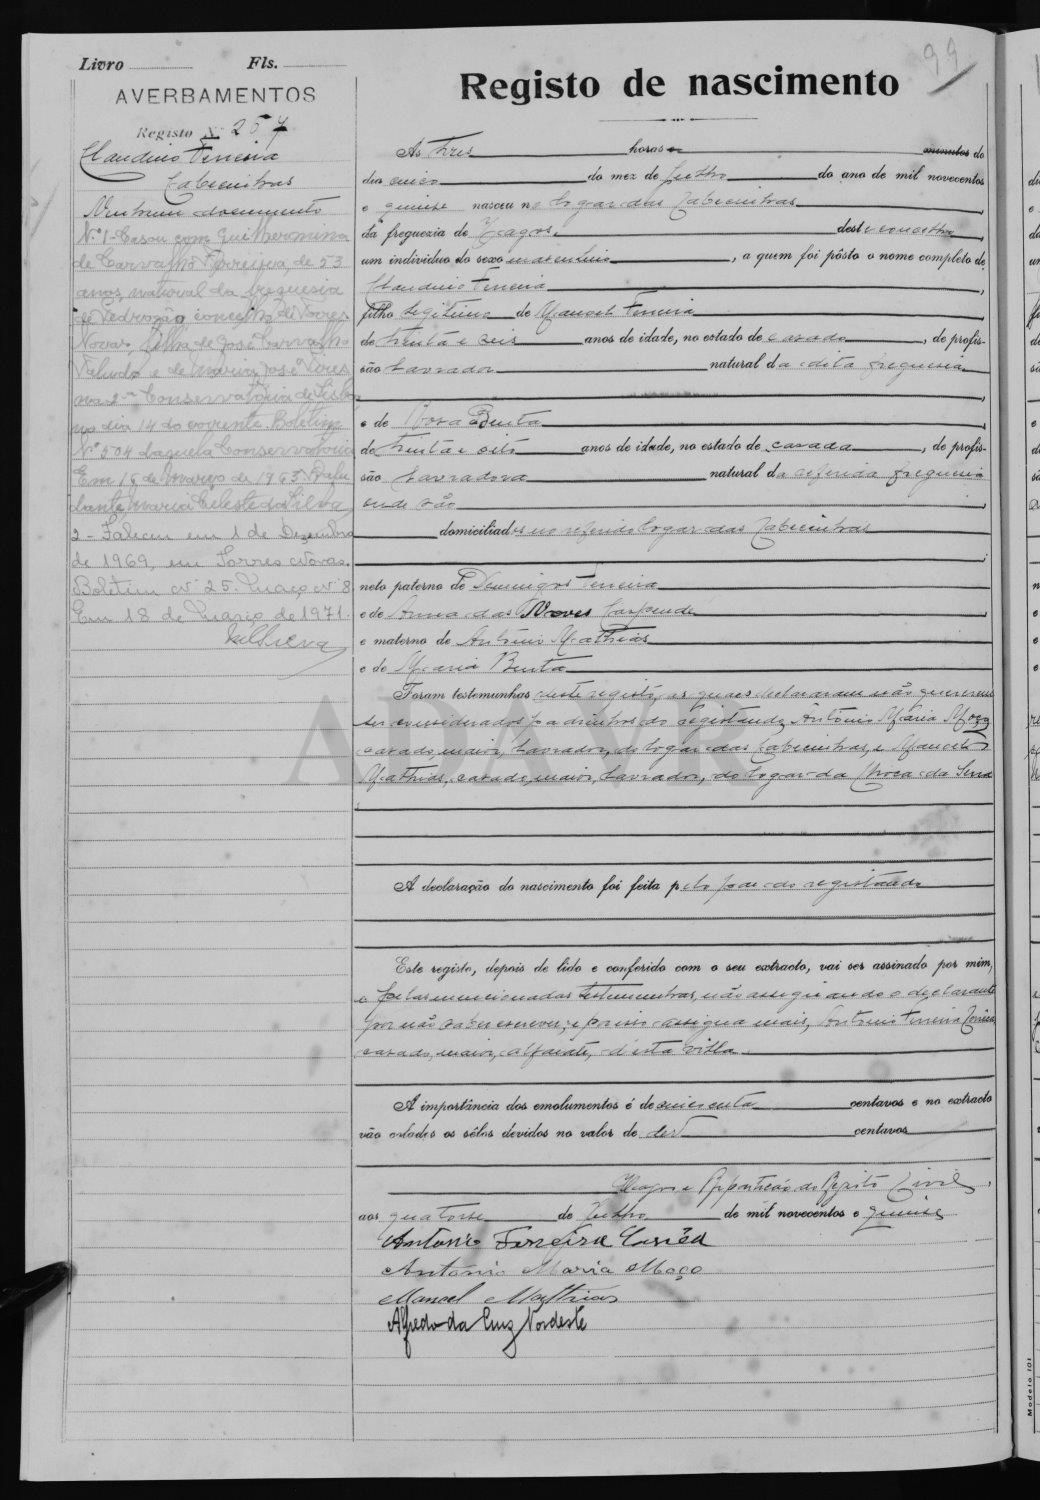 99
Livro Fls.
AVERBAMENTOS
Registo N.º 257
Claudino Ferreira
Cabecinhas
Nenhum documento
N.º 1 - Casou com Guilhermina
de Carvalho Ferreira, de 53
anos, natural da freguesia
de Pedrogão concelho de Torres
Novas, filha de José Carvalho
e de Maria José
na 2ª Conservatória de Lisboa
no dia 14 do corrente. Boletim
N.º 504 daquela Conservatória
Em 16 de Março de 1965. O Aju
dante, Maria Celeste da Silva
2 - Faleceu em 1 de Dezembro
de 1969, em Torres Novas.
Boletim nº 25. Maço nº 8
Em 18 de Março de 1971.
Registo de nascimento
Ás tres horas e minutos do
dia cinco do mez de Julho do ano de mil novecentos
e quinze nasceu no logar das Cabecinhas
da freguezia de Vagos deste concelho
um individuo do sexo masculino, a quem foi pôsto o nome completo de
Claudino Ferreira
filho legitimo de Manoel Ferreira
de trinta e seis anos de idade, no estado de casado, de profis-
são lavrador natural da dita freguesia
e de Rosa Benta
de trinta e oito anos de idade, no estado de casada, de profis-
são lavradora natural da referida freguesia
onde são
domiciliados no referido logar das Cabecinhas
neto paterno de Domingos Ferreira
e de Anna das Neves
e materno de António Mathias
e de Maria Benta
Foram testemunhas neste registo, as quaes declararam não quererem
ser considerados padrinhos do registando, António Maria Moço
casado, maior, lavrador, do logar das Cabecinhas, e Manoel
Mathias, casado, maior, lavrador, do logar da
ADAVR
A declaração do nascimento foi feita pelo pae do registando
Este registo, depois de lido e conferido com o seu extracto, vai ser assinado por mim,
e pelas mencionadas testemunhas, não assignando o declarante
por não saber escrever, e por isso assigna mais, António Ferreira
casado, maior, alfaiate, d'esta villa.
A importância dos emolumentos é de cincoenta centavos e no extracto
vão colados os sêlos devidos no valor de dez centavos
Vagos e Repartição do Registo Civil,
aos quatorze de Julho de mil novecentos e quinze
António Ferreira
António Maria Moço
Manoel Mathias
Alfredo da Cruz Nordeste
Modelo 101